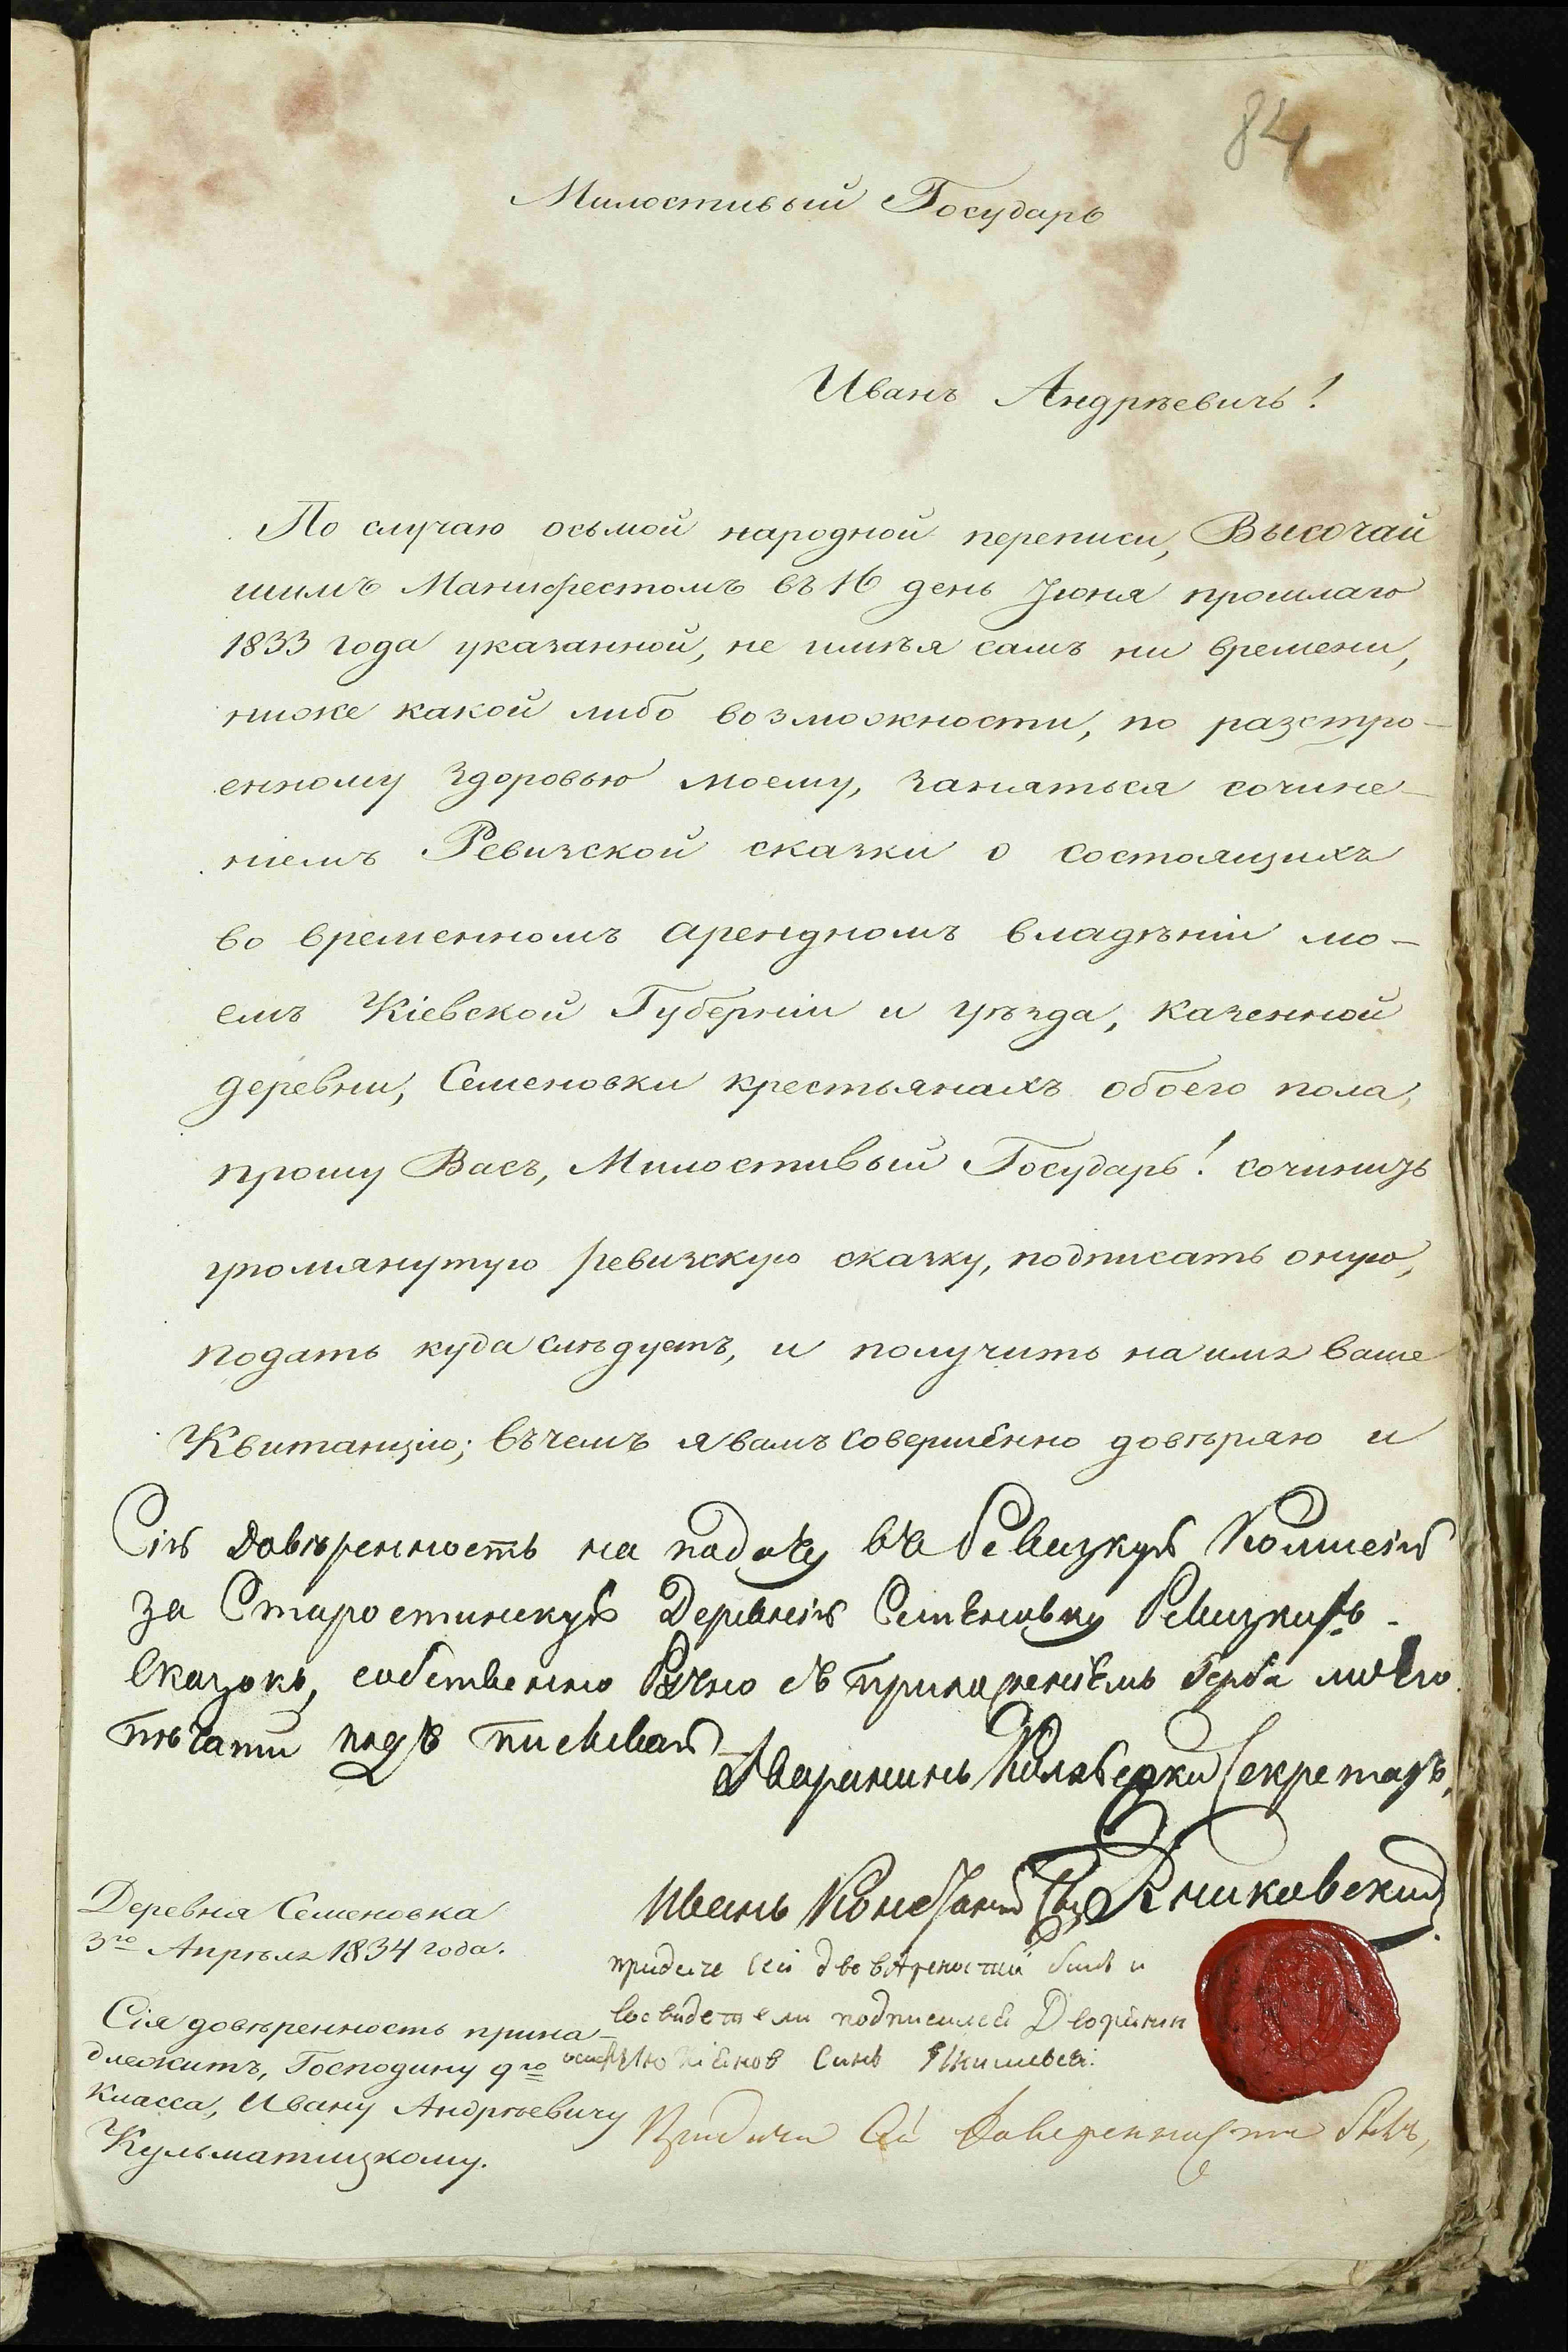 84
Милостивый Государь
Иванъ Андрѣевичь!
По случаю осьмой народной переписи, Высочай
шимъ Манифестомъ въ 16 день Іюня прошлаго
1833 года указанной, не имѣя самъ ни времени,
ниже какой либо возможности, по разстро-
енному здоровью моему, заняться сочине-
ніемъ Ревизской сказки о состоящихъ
во временномъ арендномъ владѣніи мо-
емъ Кіевской Губерніи и уѣзда, казенной
деревни, Семеновки крестьянахъ обоего пола,
прошу Васъ, Милостивый Государь! сочинить
упомянутую ревизскую сказку, подписать оную,
подать куда слѣдуетъ, и получить на имя ваше
Квитанцію; въ чемъ я вамъ совершенно довѣряю и
Сію довѣренность на подачу въ Ревизкую Комисію
за Старостинскую Деревнію Семѣновку Ревизкихъ
Сказокъ, собственно Ручно съ приложеніемъ Герба моего
печати подъ писиваю
Дваранинъ Колѣжски Секретарь,
Иванъ Сынъ
Деревня Семеновка
3го Апрѣля 1834 года.
Сія довѣренность прина-
длежитъ, Господину 9го
класса, Ивану Андрѣевичу
Кульматицкому.
придаче сей бивъ и
подписался Дворянин
Сынъ
Придачи Сей Доверенности бывъ,